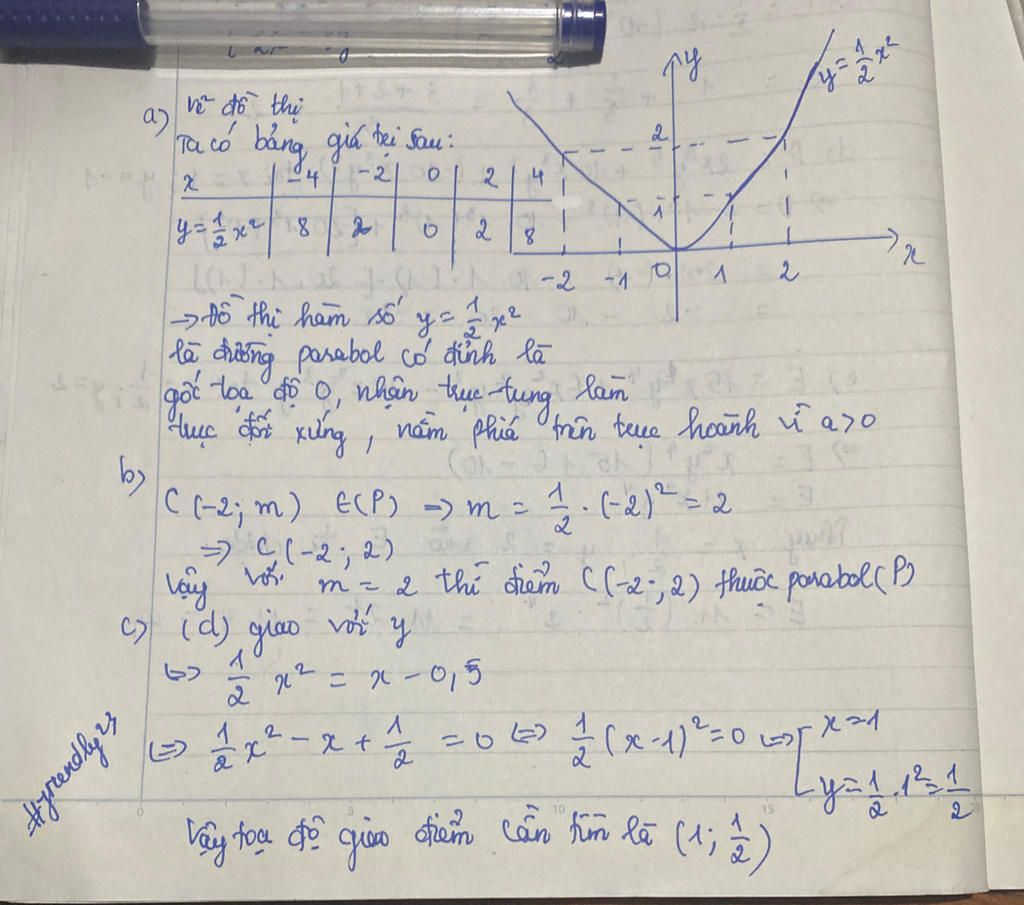 a) vẽ đồ thị
Ta có bảng giá trị sau:
x | -4 | -2 | 0 | 2 | 4
y = 1/2 x² | 8 | 2 | 0 | 2 | 8
y
y = 1/2 x²
2
1
-2 -1 0 1 2 x
→ Đồ thị hàm số y = 1/2 x²
là đường parabol có đỉnh là
gốc toạ độ O, nhận trục tung làm
trục đối xứng, nằm phía trên trục hoành vì a > 0
b)
C (-2; m) ∈ (P) => m = 1/2 . (-2)² = 2
=> C (-2; 2)
Vậy với m = 2 thì điểm C(-2; 2) thuộc parabol (P)
c) (d) giao với y
<=> 1/2 x² = x - 0,5
<=> 1/2 x² - x + 1/2 = 0 <=> 1/2 (x - 1)² = 0 <=> [ x = 1
y = 1/2 . 1² = 1/2
Vậy toạ độ giao điểm cần tìm là (1; 1/2)